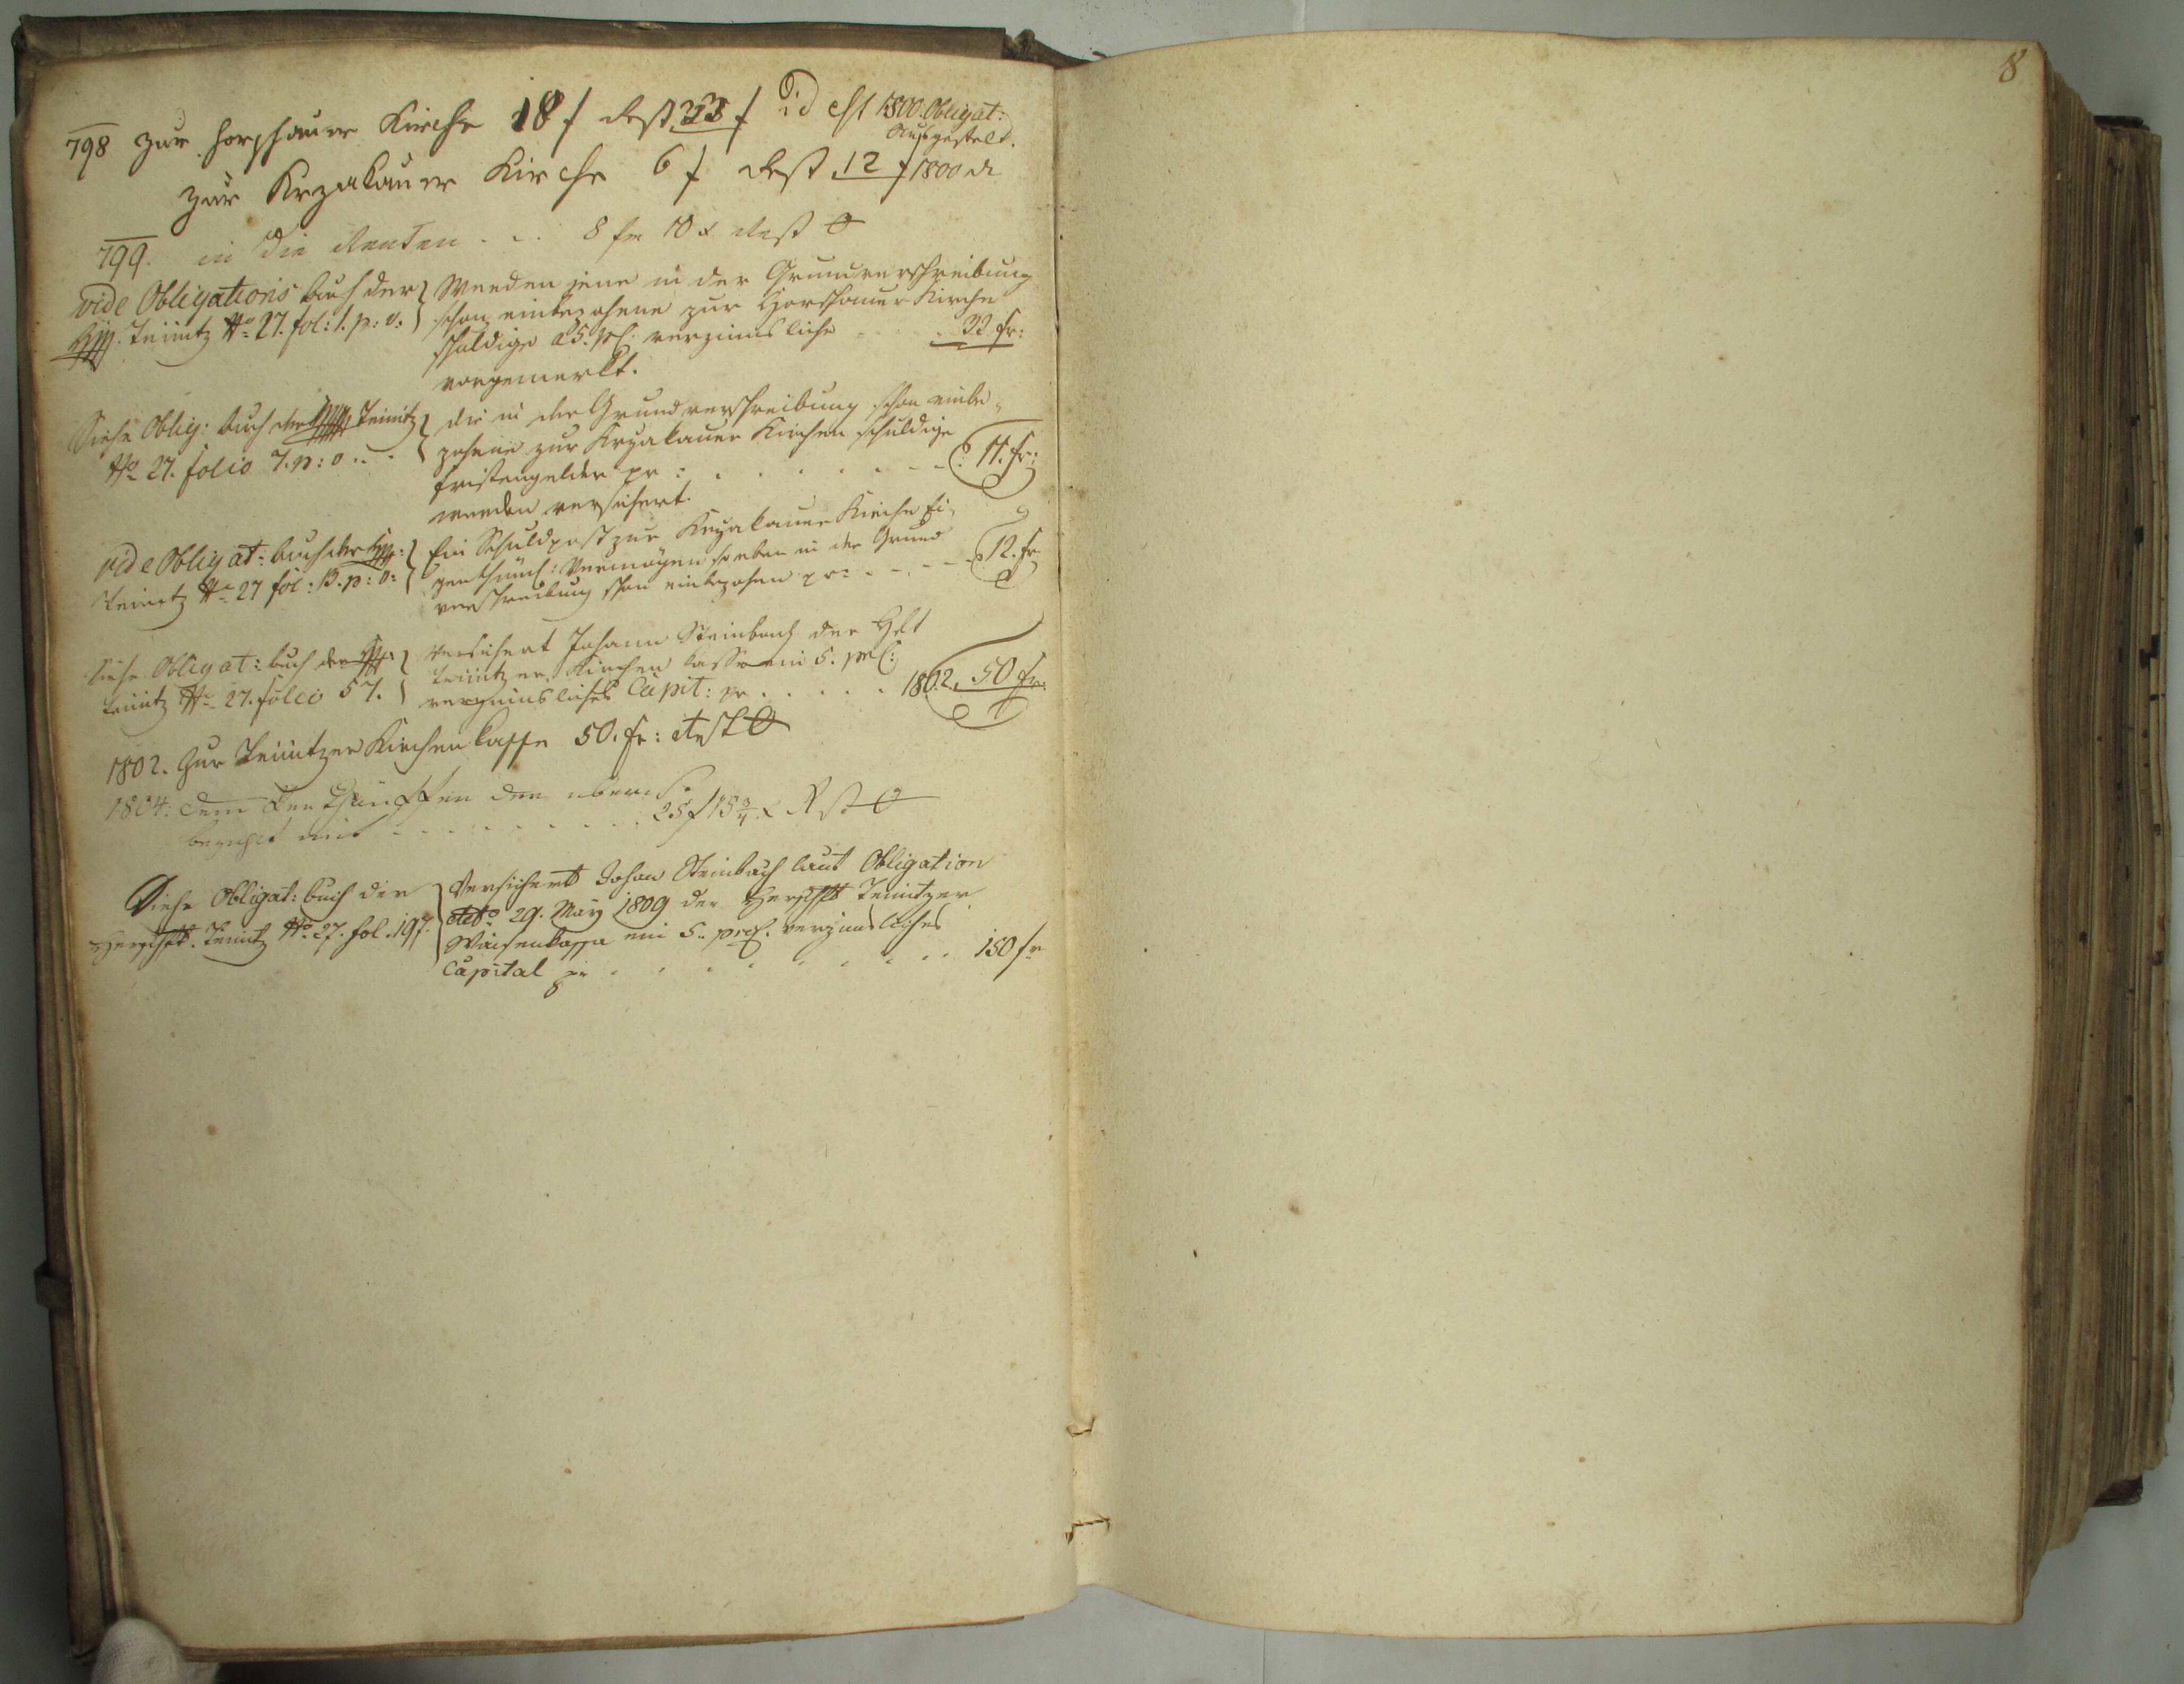 8
798 zur Horschauer Kirche 18 f Rest 33 f id est 1800. Obligat:
Ausgestelt.
zur Krzakauer Kirche 6 f Rest 12 f 1800 dt
799. in die Renten . . . 8 fr 10 x Rest 0
vide Obligations buch der
Hft. Teinitz No. 27. fol: 1. p: v:
Werden jene in der Grundverschreibung
schon einbezohene zur Horschauer Kirche
schuldige a 5. pC: verzinnsliche . . 32 fr:
vorgemerkt.
Siehe Oblig: buch der Hft Teinitz
No 27. folio 7. p: v . .
die in der Grundverschreibung schon einbe-
zohene zur Krzakauer Kirchen schuldige
fristengelder pr: . . . . . . . 11. fr:
werden versichert.
vide Obligat: buch der Hft:
Teinitz No 27 fol: 13. p: v:
Ein Schuldpost zur Krzakauer Kirche Ei-
genthüml: Vermögen so eben in der Grund
verschreibung schon einbezohen pr: . . . . 12. fr
Siehe Obligat: buch der Hft:
Teinitz No 27. folio 57.
versichert Johann Steinbach der Hft
Teinitzer Kirchen Cassa ein 5. prC:
verzinnsliches Capit: pr . . . . . 1802. 50 fr:
1802. Zur Teinitzer Kirchen Cassa 50. fr: Rest 0
1804: dem
bezahlt mit . . . . . . . . . 25 f 15 3/4 x Rst 0
Siehe Obligat: buch der
Herrschft. Teinitz No. 27. fol. 197.
Versichert Johan Steinbach laut Obligation
dtto 29. May 1809 der Herrschft Teinitzer
Waisenkassa ein 5. proC. verzinsliches
Capital pr . . . . . . . . 150 fr